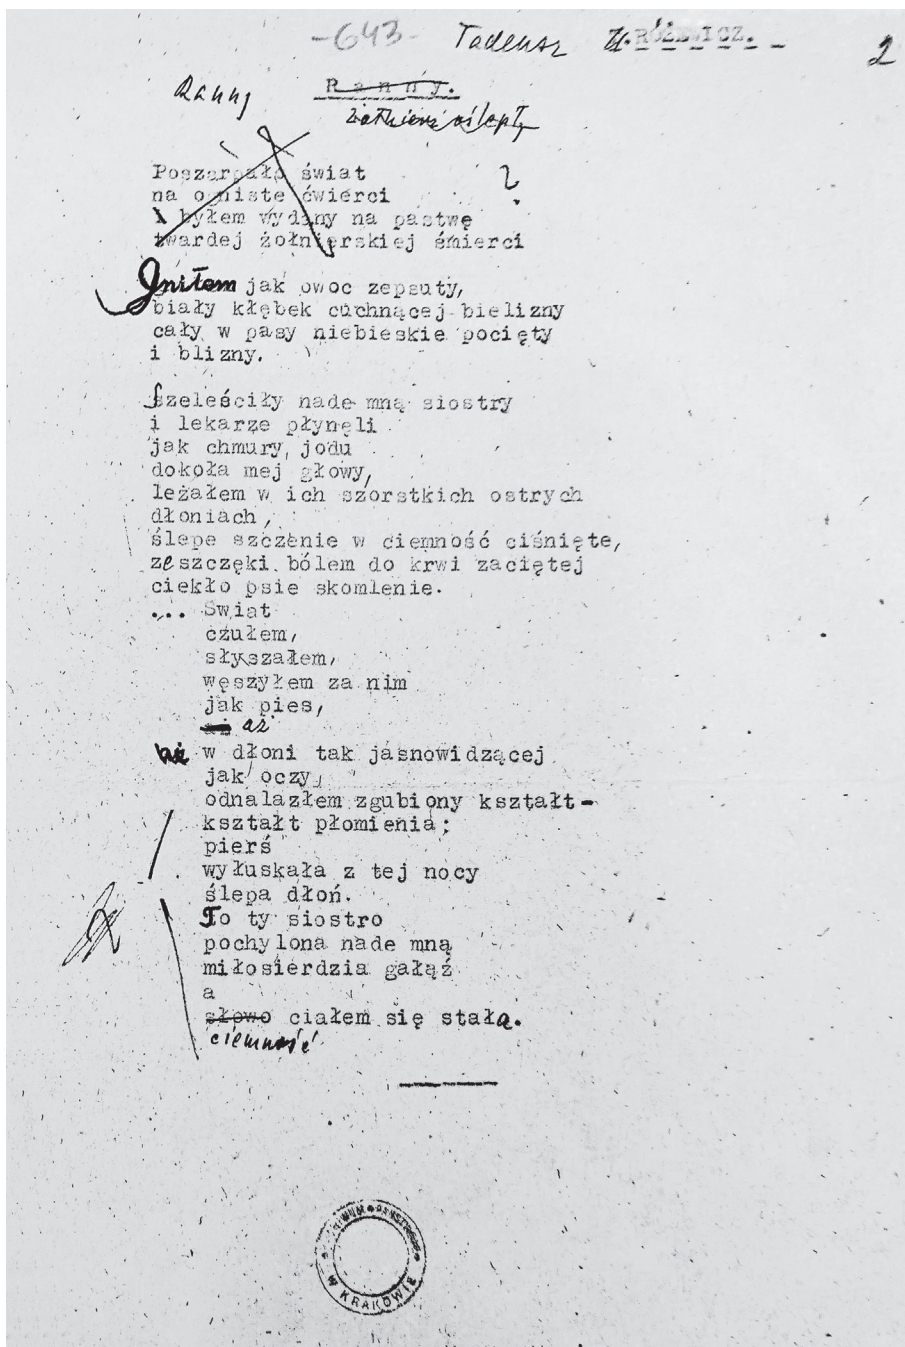 -643-
Tadeusz RÓŻEWICZ.
2
Ranny
Ranny.
żołnierz oślepły
Poszarpało świat
?
na ogniste ćwierci
I byłem wydany na pastwę
twardej żołnierskiej śmierci
Gniłem jak owoc zepsuty,
biały kłębek cuchnącej bielizny
cały w pasy niebieskie pocięty
i blizny.
Szeleściły nade mną siostry
i lekarze płynęli
jak chmury jodu
dokoła mej głowy,
leżałem w ich szorstkich ostrych
dłoniach,
ślepe szczenie w ciemność ciśnięte,
ze szczęki bólem do krwi zaciętej
ciekło psie skomlenie.
... Świat
czułem,
słyszałem,
węszyłem za nim
jak pies,
aż
w dłoni tak jasnowidzącej
jak oczy
odnalazłem zgubiony kształt-
kształt płomienia;
pierś
wyłuskała z tej nocy
ślepa dłoń.
To ty siostro
pochylona nade mną
miłosierdzia gałąź
a
słowo ciałem się stała.
ciemność
W KRAKOWIE